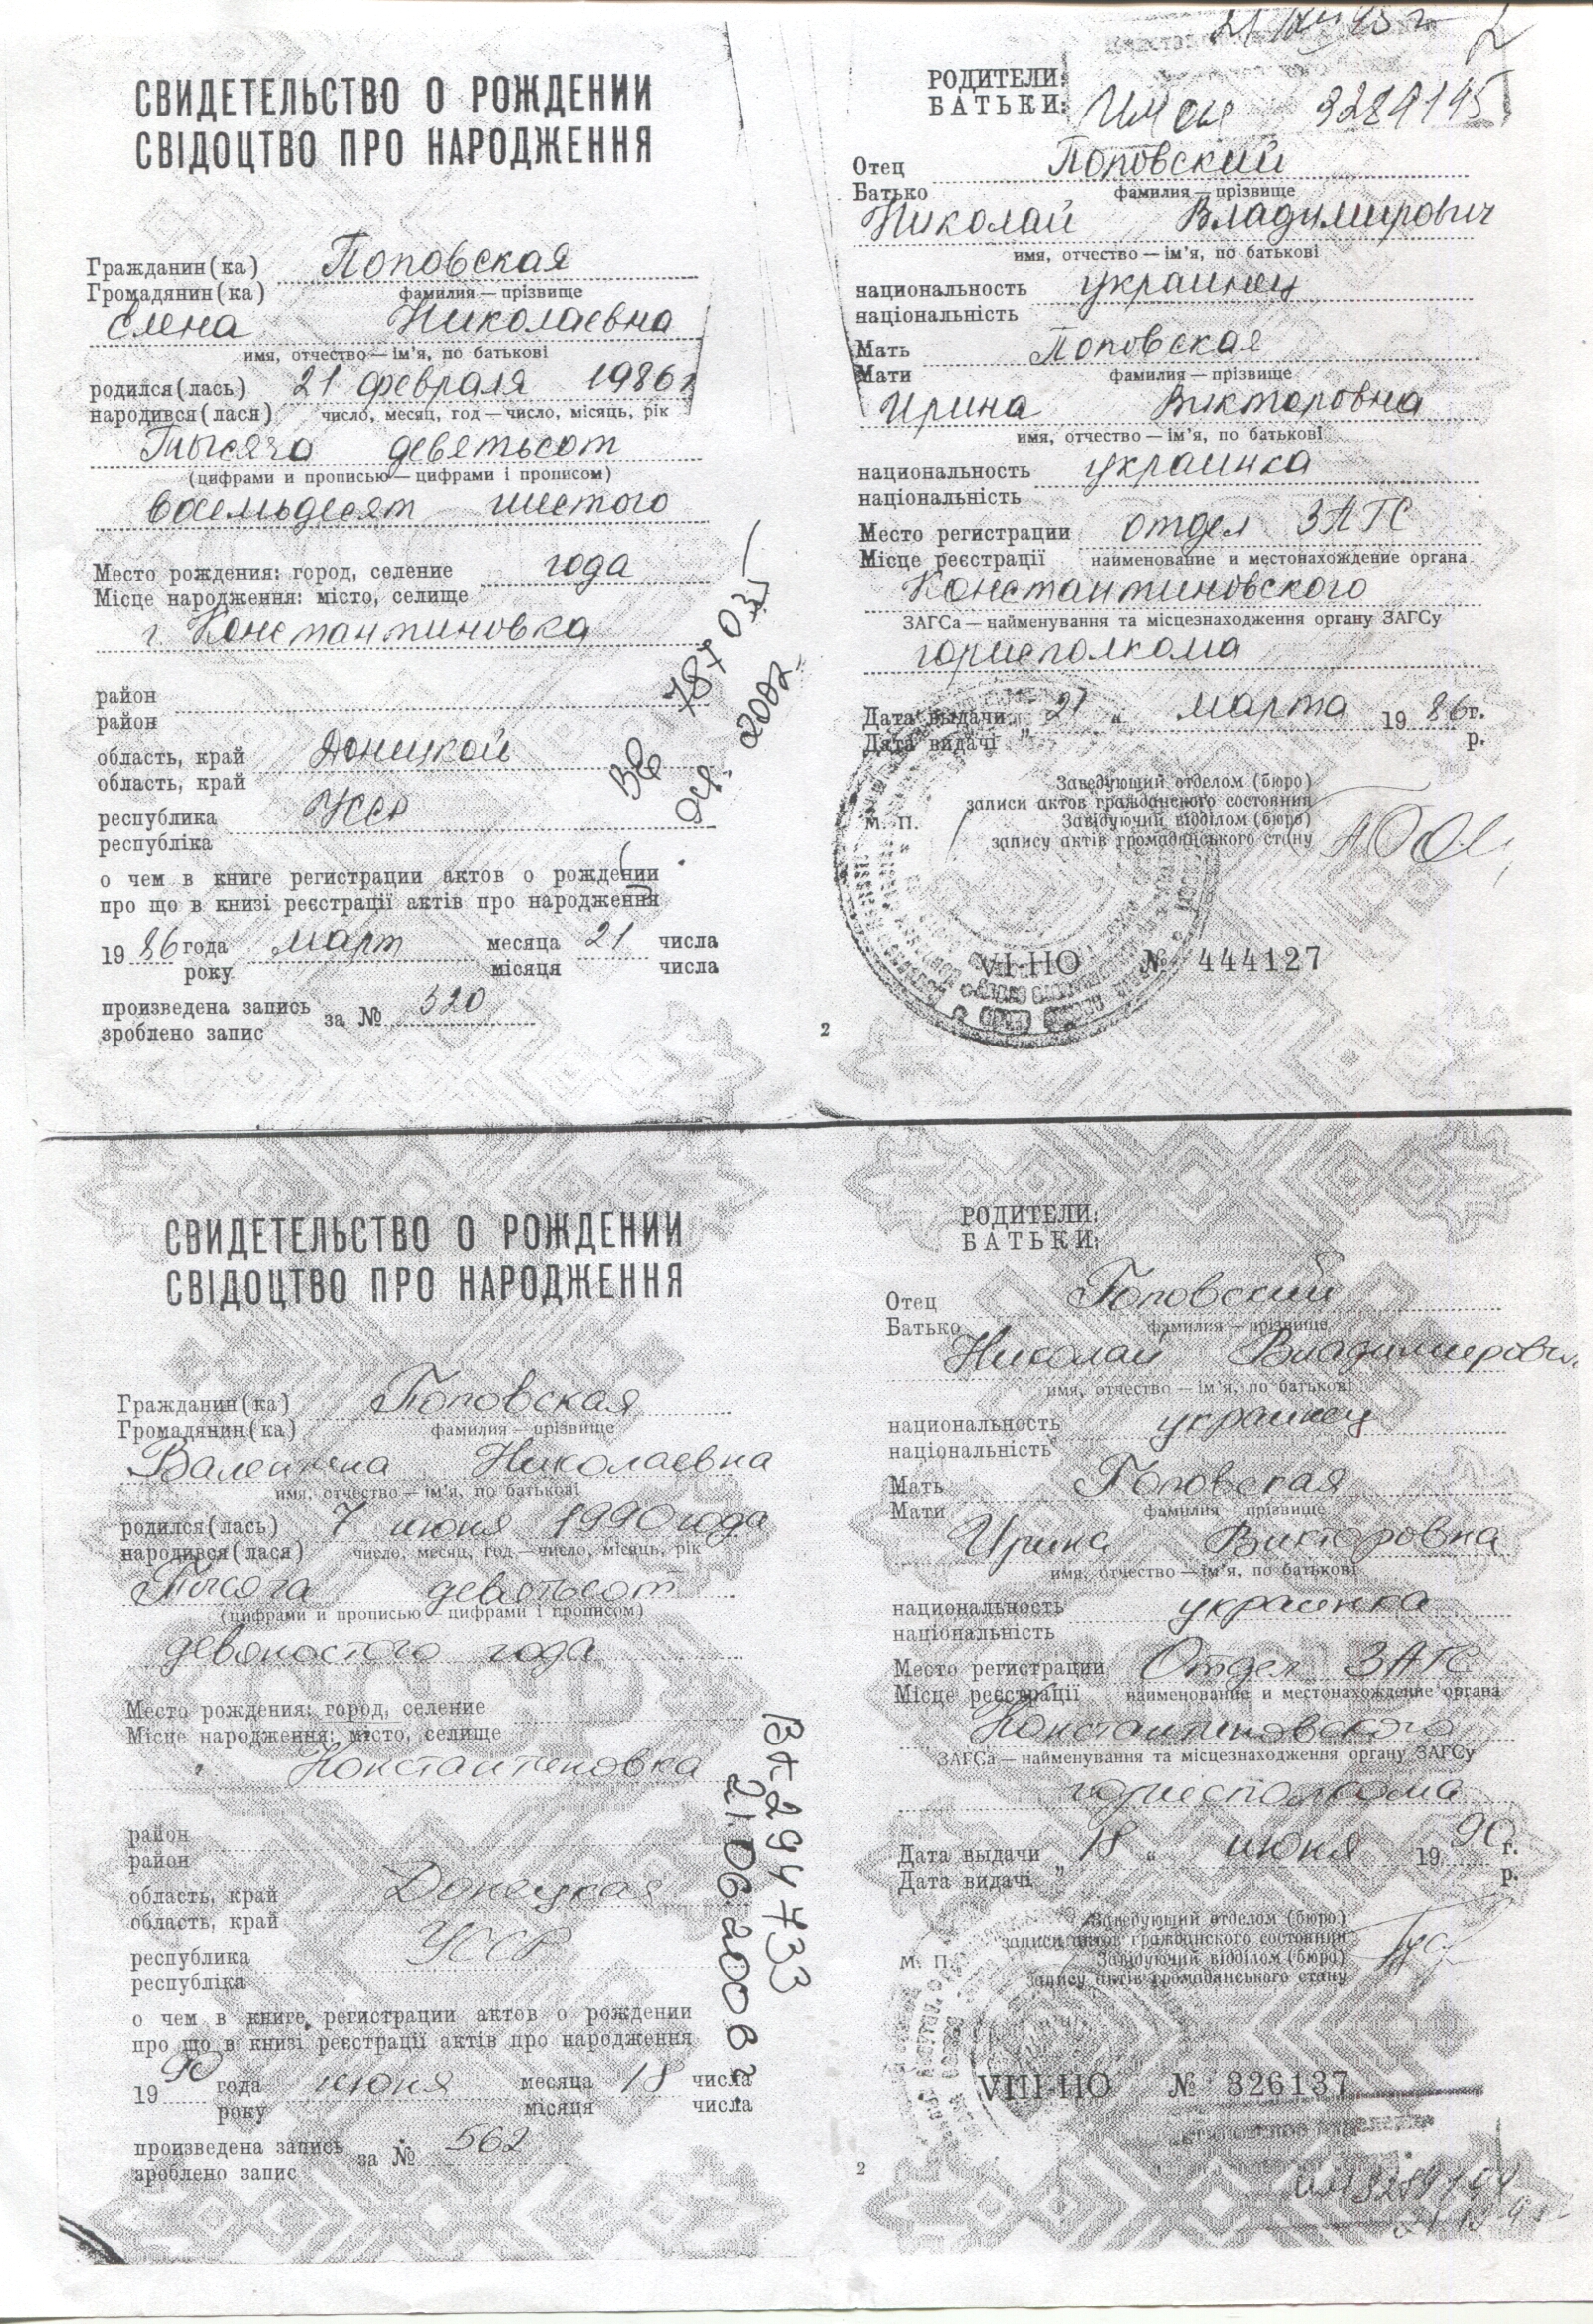 СВИДЕТЕЛЬСТВО О РОЖДЕНИИ
СВІДОЦТВО ПРО НАРОДЖЕННЯ
Гражданин(ка) Поповская
Громадянин(ка) фамилия — прізвище
Елена Николаевна
имя, отчество — ім'я, по батькові
родился(лась) 21 февраля 1986 г
народився(лася) число, месяц, год — число, місяць, рік
Тысяча девятьсот
(цифрами и прописью — цифрами і прописом)
восемьдесят шестого
Место рождения: город, селение года
Місце народження: місто, селище
г. Константиновка
район
район
область, край Донецкой
область, край
республика УССР
республіка
о чем в книге регистрации актов о рождении
про що в книзі реєстрації актів про народження
19 86 года март месяца 21 числа
року місяця числа
произведена запись за № 320
зроблено запис
787031
2002
РОДИТЕЛИ:
БАТЬКИ:
Отец Поповский
Батько фамилия — прізвище
Николай Владимирович
имя, отчество — ім'я, по батькові
национальность украинец
національність
Мать Поповская
Мати фамилия — прізвище
Ирина Викторовна
имя, отчество — ім'я, по батькові
национальность украинка
національність
Место регистрации отдел ЗАГС
Місце реєстрації наименование и местонахождение органа
Константиновского
ЗАГСа — найменування та місцезнаходження органу ЗАГСу
горисполкома
Дата выдачи „ 21 " марта 19 86 г.
Дата видачі р.
Заведующий отделом (бюро)
записи актов гражданского состояния
М. П. Завідуючий відділом (бюро)
запису актів громадянського стану
VI-НО № 444127
2
СВИДЕТЕЛЬСТВО О РОЖДЕНИИ
СВІДОЦТВО ПРО НАРОДЖЕННЯ
Гражданин(ка) Поповская
Громадянин(ка) фамилия — прізвище
Валентина Николаевна
имя, отчество — ім'я, по батькові
родился(лась) 7 июня 1990 года
народився(лася) число, месяц, год — число, місяць, рік
Тысяча девятьсот
(цифрами и прописью — цифрами і прописом)
девяностого года
Место рождения: город, селение
Місце народження: місто, селище
г. Константиновка
район
район
область, край Донецкая
область, край
республика УССР
республіка
о чем в книге регистрации актов о рождении
про що в книзі реєстрації актів про народження
19 90 года июня месяца 18 числа
року місяця числа
произведена запись за № 562
зроблено запис
ВК 294733
21.06.2006 г.
РОДИТЕЛИ:
БАТЬКИ:
Отец Поповский
Батько фамилия — прізвище
Николай Владимирович
имя, отчество — ім'я, по батькові
национальность украинец
національність
Мать Поповская
Мати фамилия — прізвище
Ирина Викторовна
имя, отчество — ім'я, по батькові
национальность украинка
національність
Место регистрации Отдел ЗАГС
Місце реєстрації наименование и местонахождение органа
Константиновского
ЗАГСа — найменування та місцезнаходження органу ЗАГСу
горисполкома
Дата выдачи „ 18 " июня 19 90 г.
Дата видачі р.
Заведующий отделом (бюро)
записи актов гражданского состояния
М. П. Завідуючий відділом (бюро)
запису актів громадянського стану
VIII-НО № 326137
2